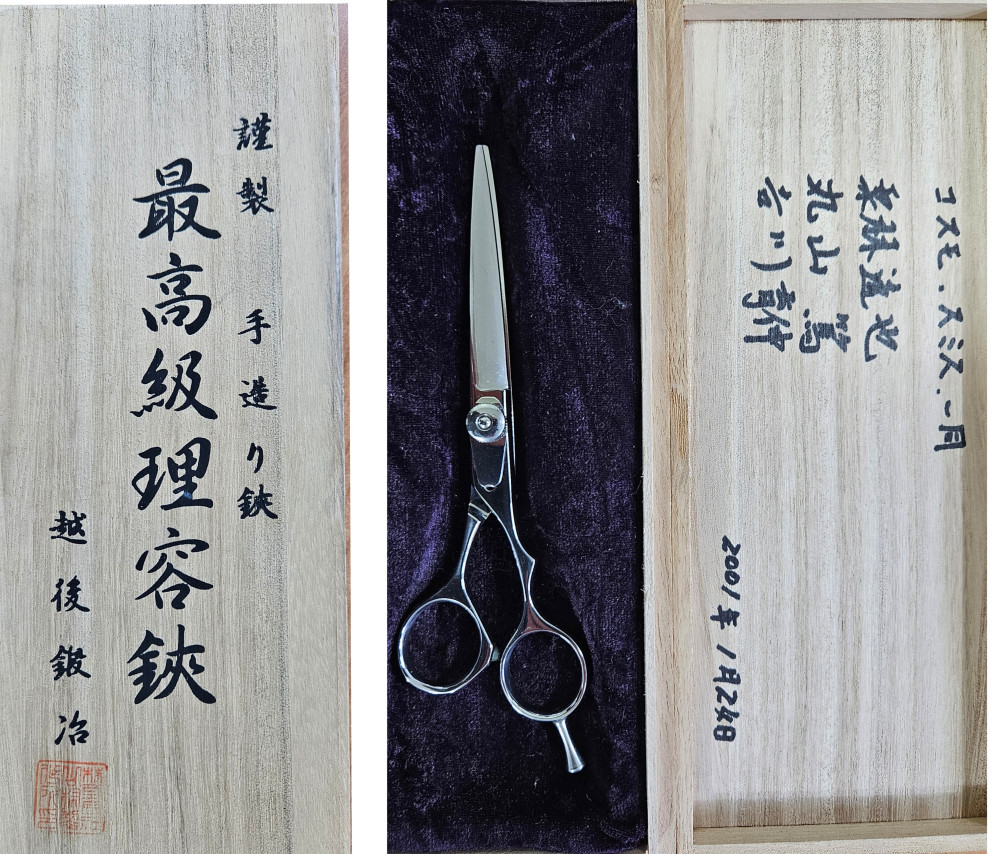 謹製 手造り鋏
最高級理容鋏
越後鍛冶
コスモ．スミス．一月
栗林達也
丸山 篤
吉川
2001年 1月24日